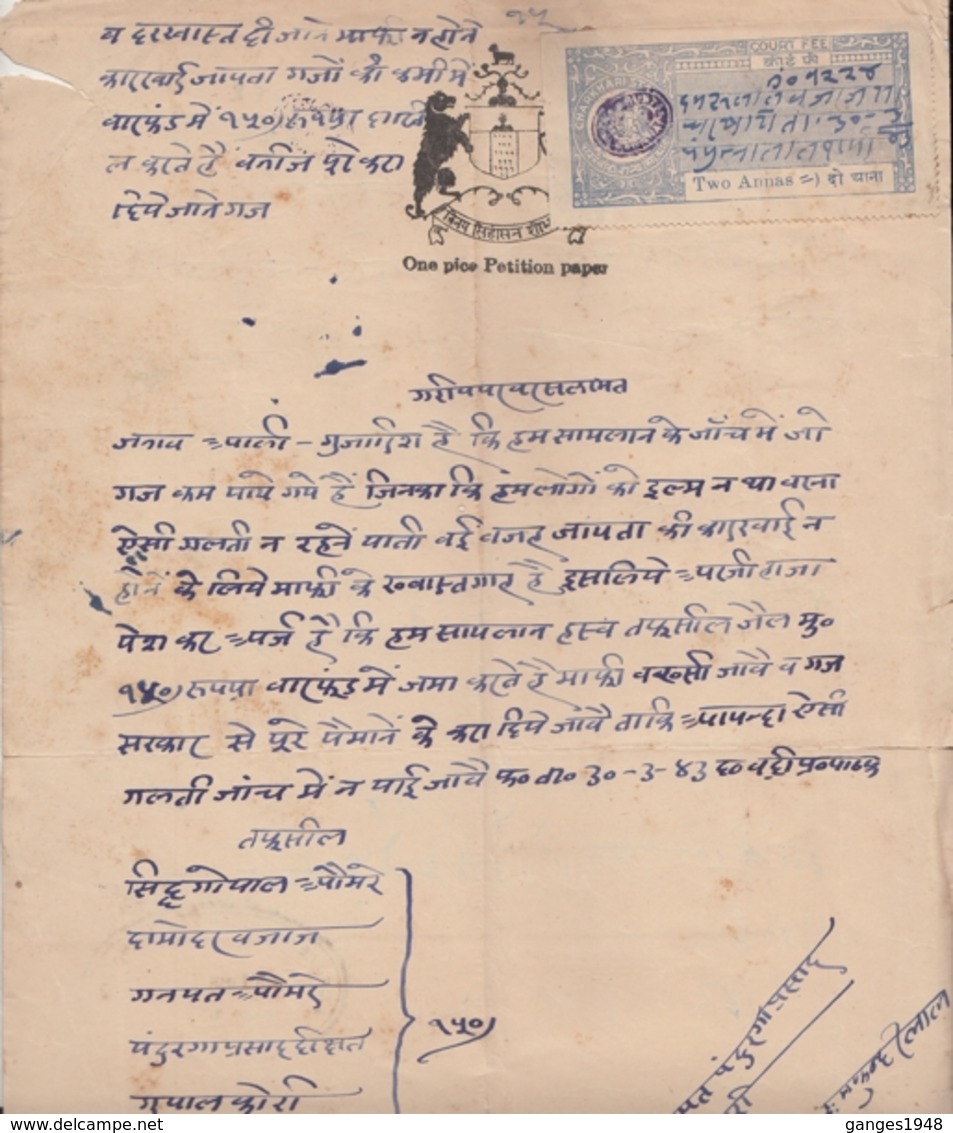 व दरखास्त दी जाने माफी न होने
कारवाई जापता गजों की कमी में
वारफंड में १५०) रुपया दाखि
ल करते है वनीज पूरे करा
दिये जाने गज
COURT FEE
कोर्ट फी
Two Annas =) दो आना
विनय सिंहासन
One pice Petition paper
गरीबपरवर सलामत
जनाब आली - गुजारिश है कि हम सायलान के जाँच में जो
गज कम पाये गये हैं जिनका कि हंम लोगों को इल्म न था वरना
ऐसी गलती न रहने पाती वजह जापता की कारवाई न
होने के लिये माफी के ख्वास्तगार है इसलिये अर्जी हाजा
पेश कर अर्ज है कि हम सायलान हस्व तफ्सील जैल मु०
१५०) रुपया वारफंड में जमा करते है माफी वख्सी जावै व गज
सरकार से पूरे पैमाने के करा दिये जावै ताकि आयन्दा ऐसी
गलती जांच में न पाई जावै फ० ता० ३०-३-४३ द० वद्री प्र० पाठक
तफ्सील
सिद्धगोपाल पौमरे
दामोदर वजाज
गनपत पौमरे
पं दुरगाप्रसाद दीक्षत
गुपाल कोरी
१५०)
पं दुरगाप्रसाद
लाल
www.delcampe.net
ganges1948